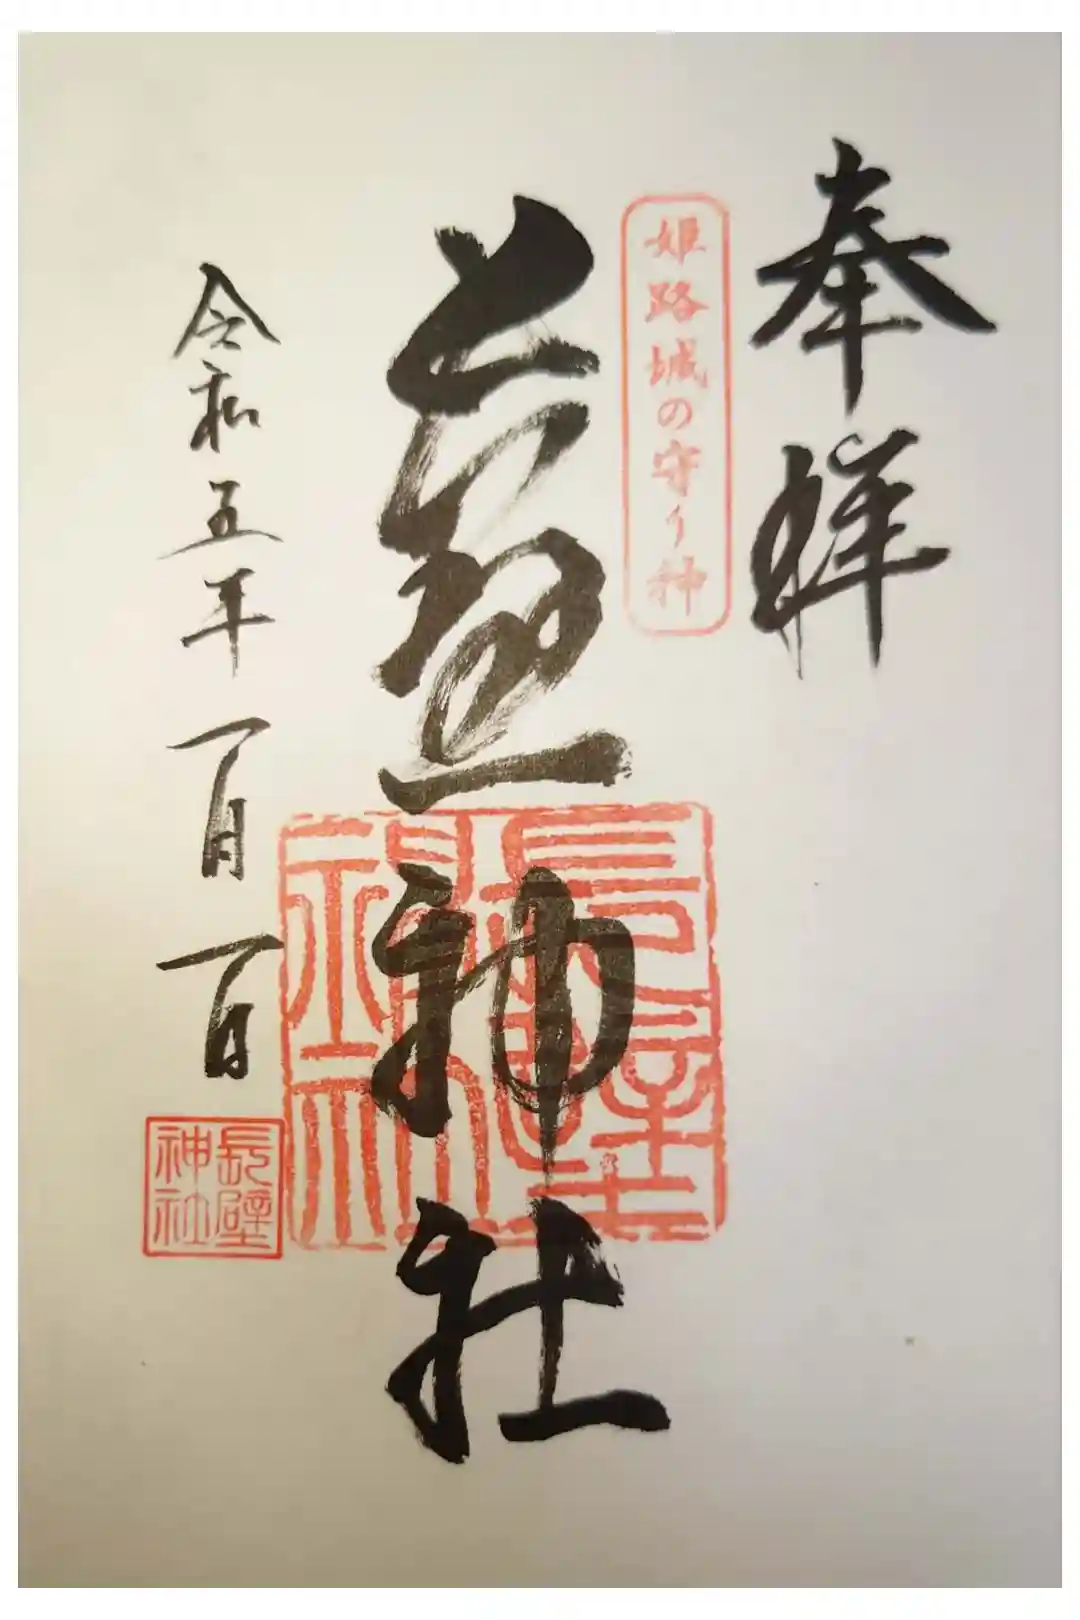 奉拝
姫路城の守り神
長壁神社
長壁神社
令和五年一月一日
長壁神社